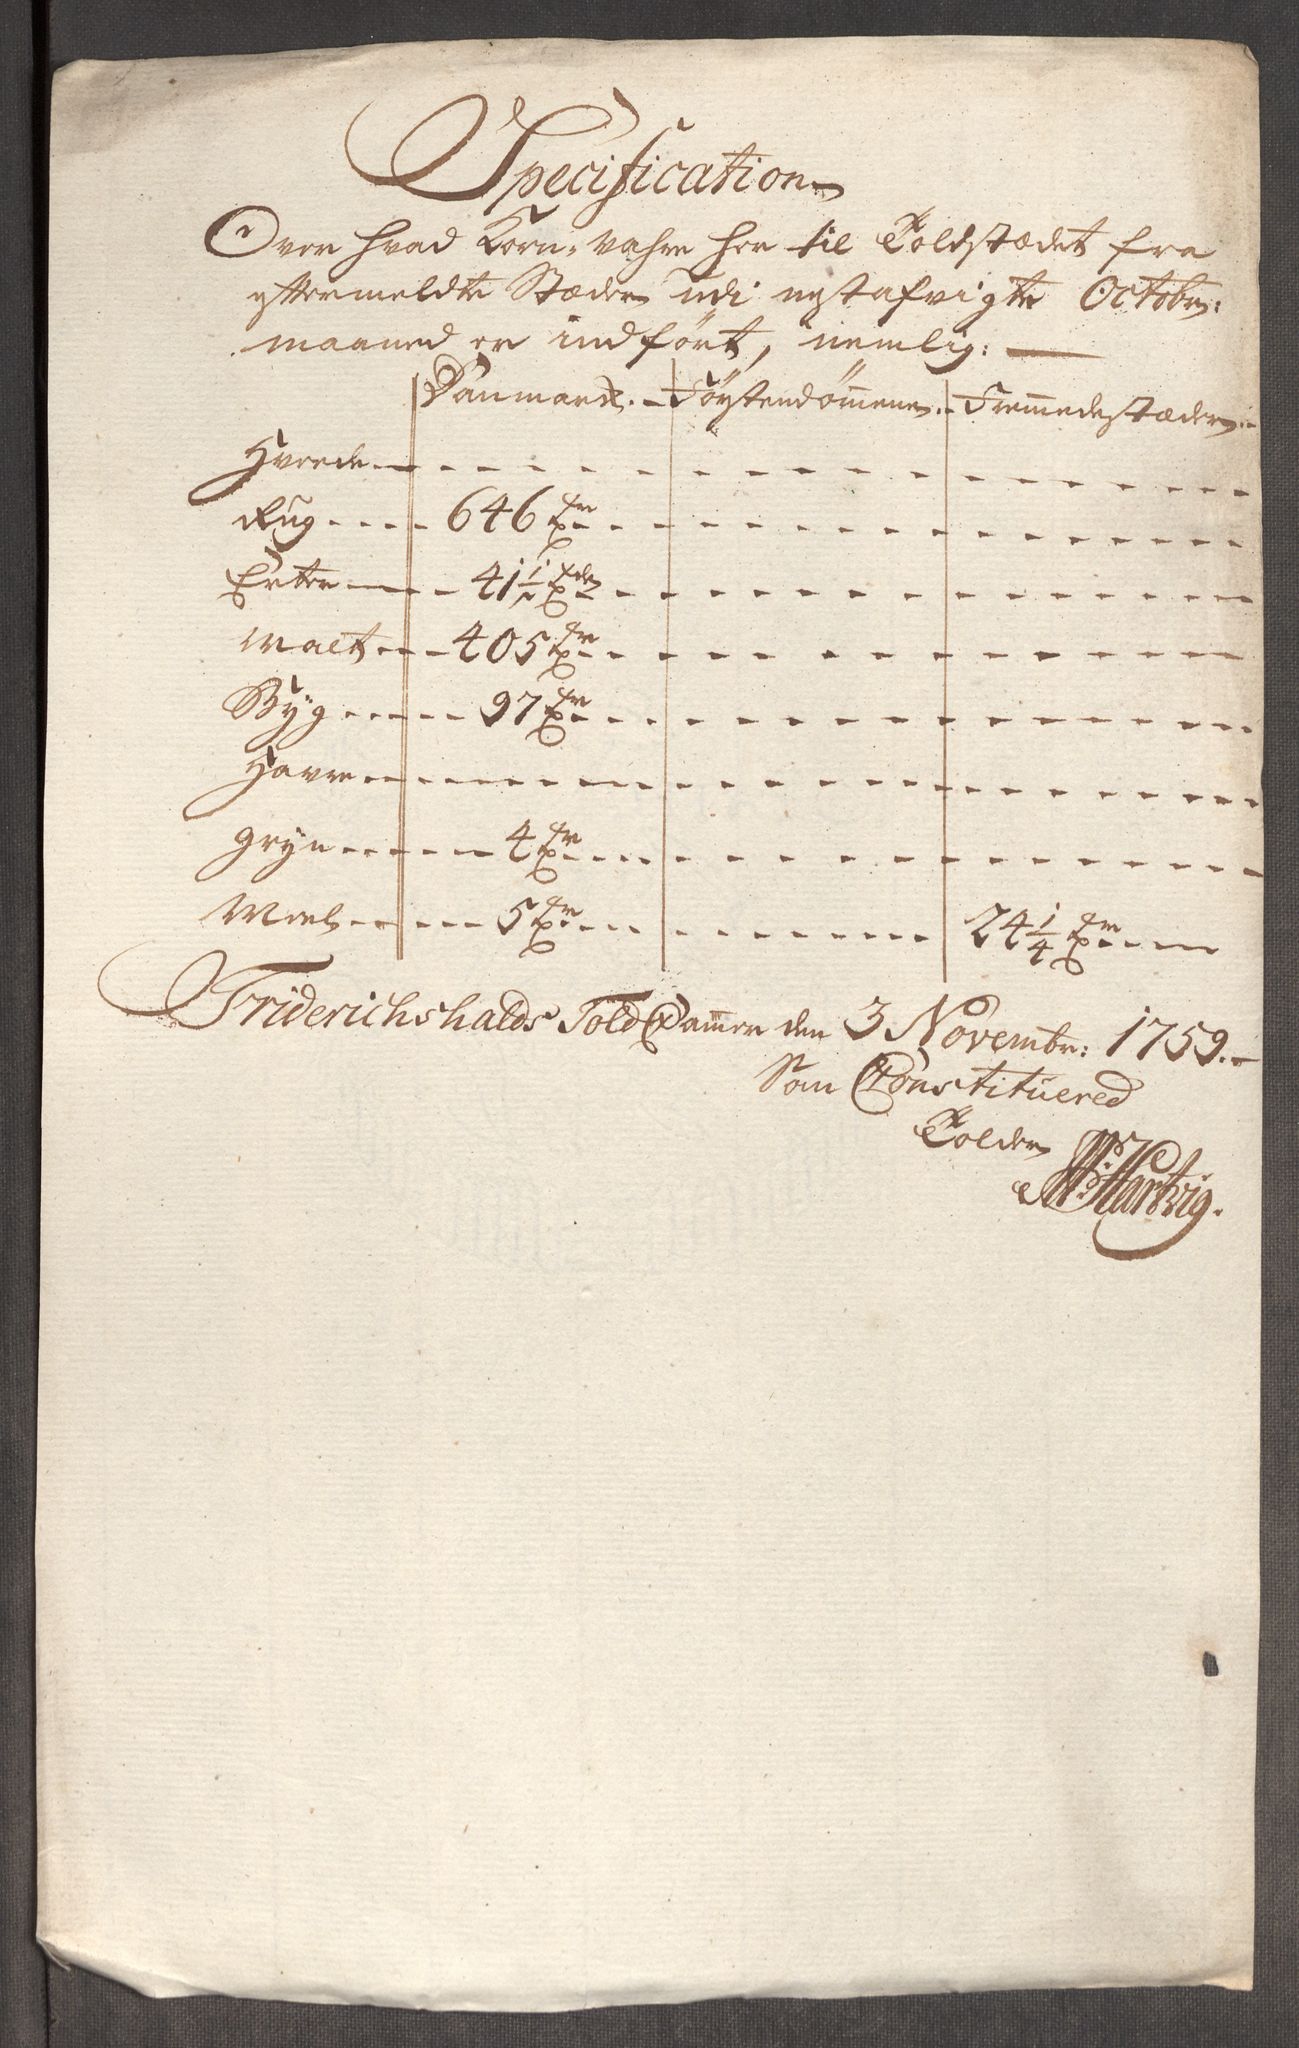 Specification
Over hvad Korn-vahre her til Toldstædet fra
eftermeldte Stæder udi nestafvigte Octobr:
maaned er indført, nemlig:
Danmark. Førstendømmene. Fremmedestæder.
Hvede
Rug 646 Tr
Erter 41 1/2 Tdr
Malt 405 Tr
Byg 97 Tr
Havre
Gryn 4 Tr
Meel 5 Tr 24 1/4 Tr
Friderichshalds Told Cammer den 3 Novembr: 1759.
Som Constituered
Tolder
Hartvig.